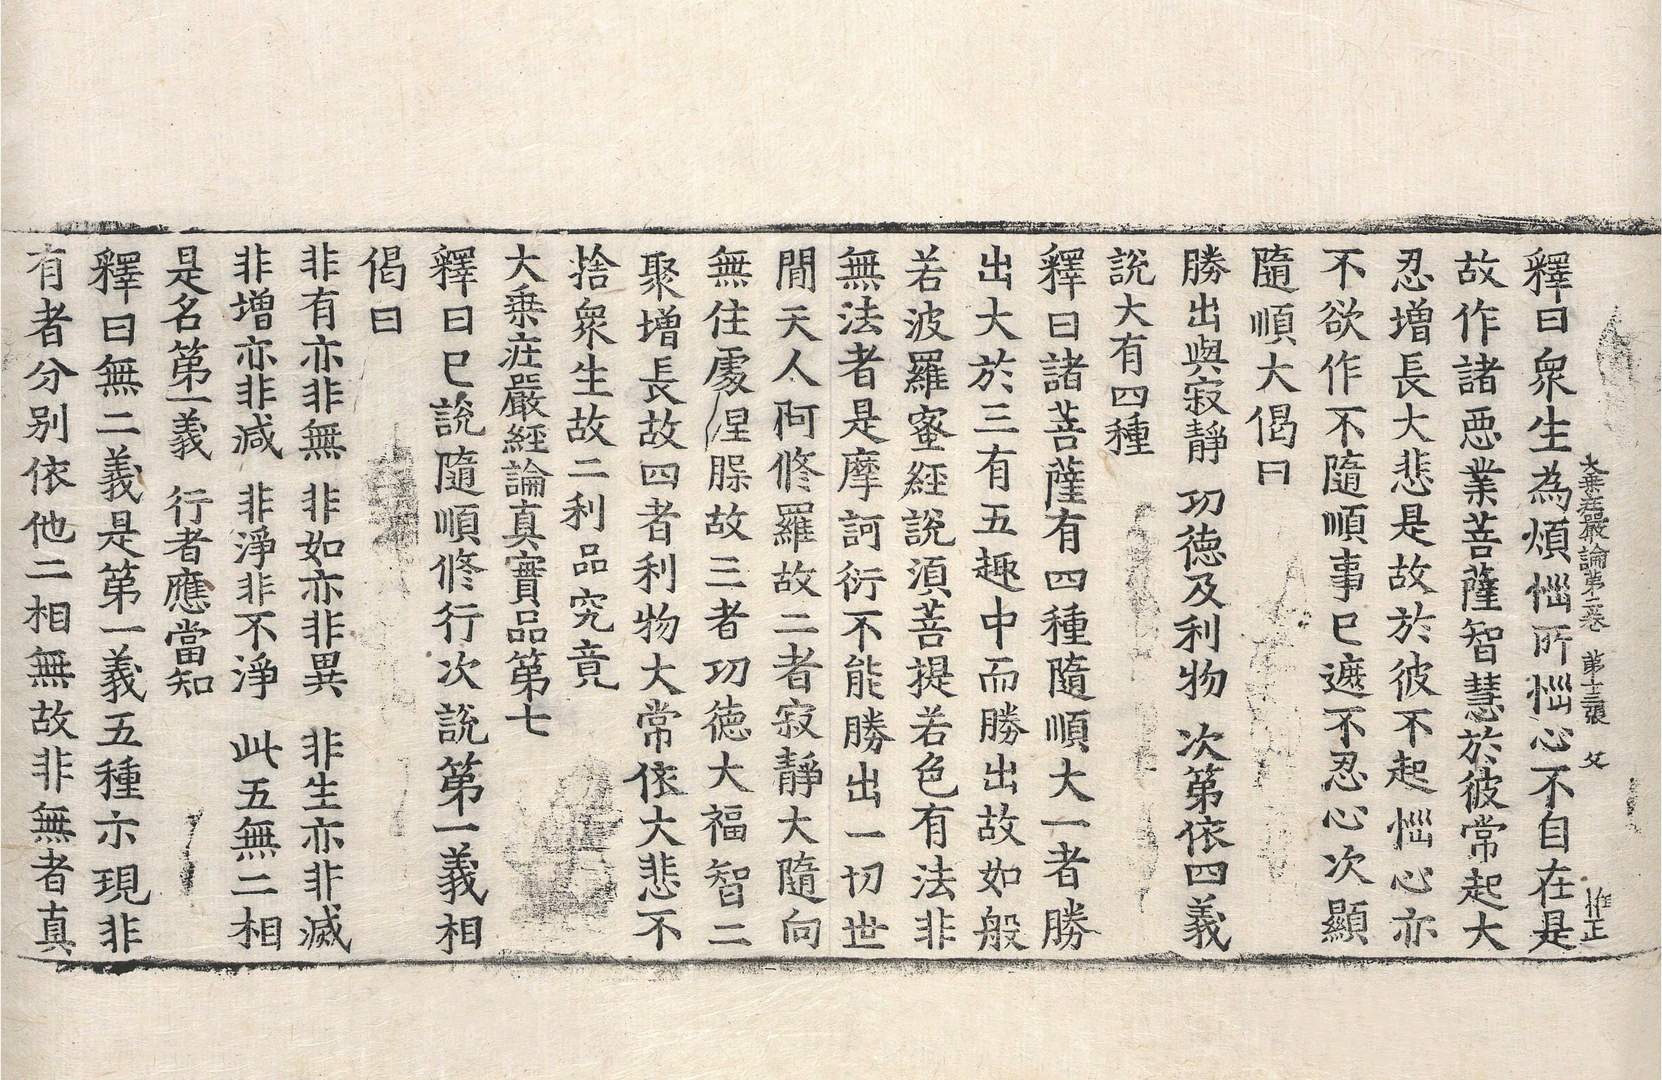 大乗庄嚴論第二卷　第十三張　父　惟正
釋曰衆生為煩惱所惱心不自在是
故作諸惡業菩薩智慧於彼常起大
忍增長大悲是故於彼不起惱心亦
不欲作不隨順事已遮不忍心次顯
隨順大偈曰
勝出與寂靜　功德及利物　次第依四義
說大有四種
釋曰諸菩薩有四種隨順大一者勝
出大於三有五趣中而勝出故如般
若波羅蜜經說湏菩提若色有法非
無法者是摩訶衍不能勝出一切世
間天人阿修羅故二者寂靜大隨向
無住處涅腺故三者功德大福智二
聚增長故四者利物大常依大悲不
捨衆生故二利品究竟
大乗庄嚴經論真實品第七
釋曰已說隨順修行次說第一義相
偈曰
非有亦非無　非如亦非異　非生亦非滅
非增亦非減　非淨非不淨　此五無二相
是名第一義　行者應當知
釋曰無二義是第一義五種示現非
有者分別依他二相無故非無者真